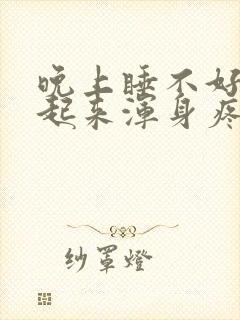 晚上睡不好
起来浑身疼
纱罩燈